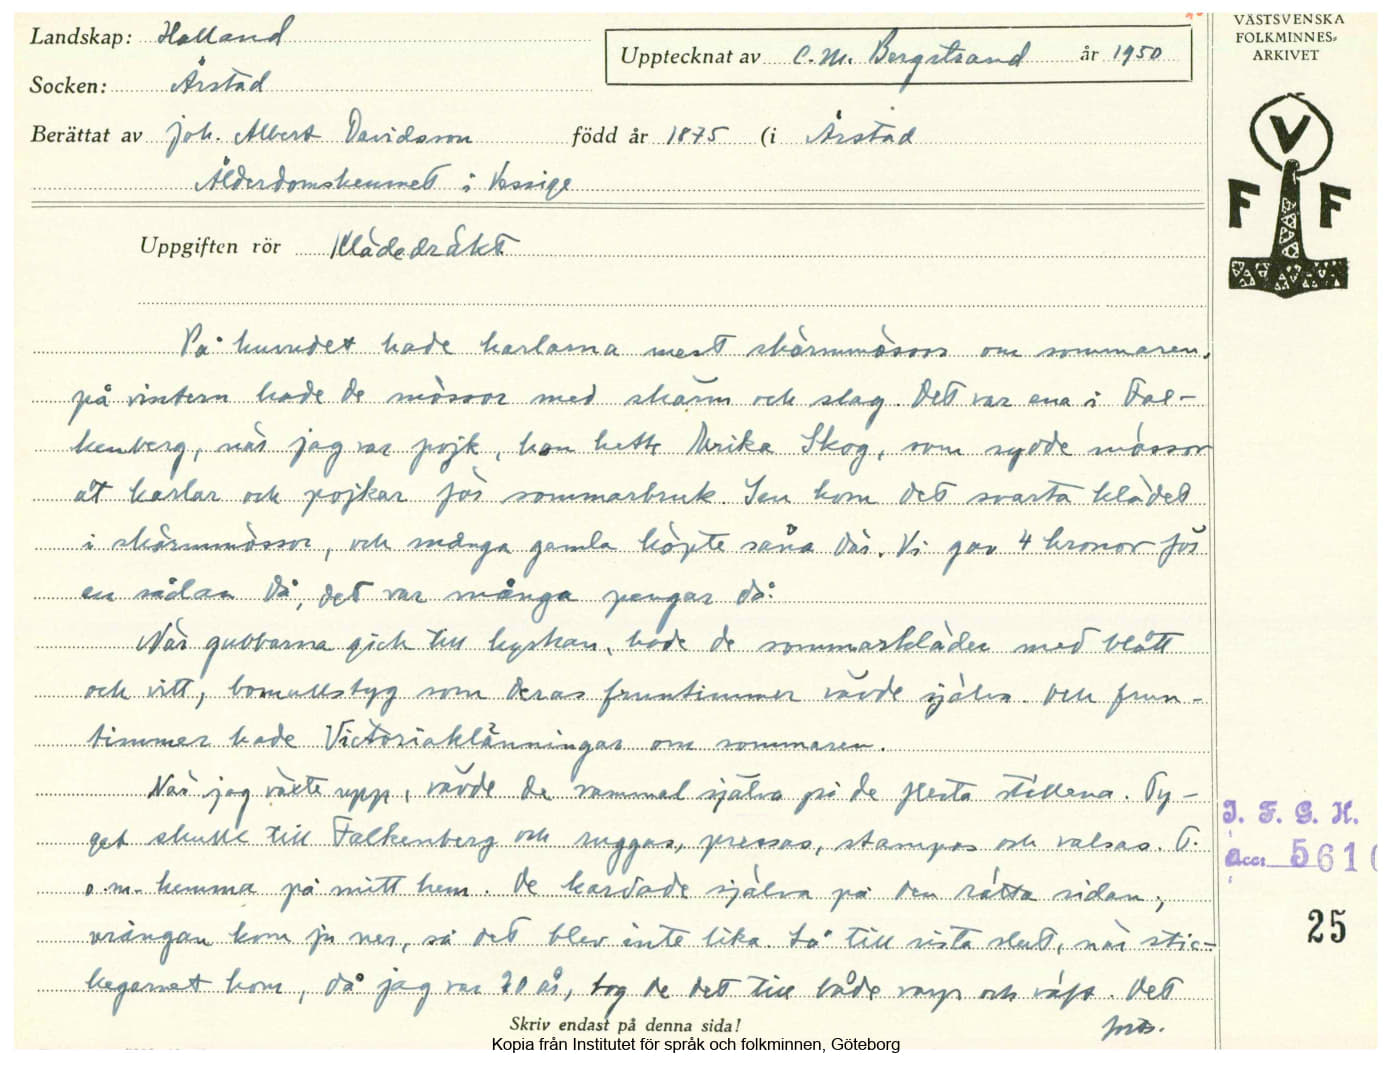 Landskap: Halland
Upptecknat av C. M. Bergstrand år 1950
Socken: Årstad
Berättat av Joh. Albert Davidsson född år 1875 (i Årstad
Ålderdomshemmet i Vessige
Uppgiften rör Klädedräkt.
VÄSTSVENSKA
FOLKMINNES-
ARKIVET
V
F F
På huvudet hade karlarna mest skärmmössor om sommaren,
på vintern hade de mössor med skärm och slag. Det var ena i Fal-
kenberg, när jag var pojk, hon hette Ulrika Skog, som sydde mössor
åt karlar och pojkar för sommarbruk. Sen kom det svarta klädet
i skärmmössor, och många gamla köpte såna där. Vi gav 4 kronor för
en sådan då, det var många pengar då.
När gubbarna gick till kyrkan, hade de sommarkläder med blått
och vitt, bomullstyg som deras fruntimmer vävde själva. Och frun-
timmer hade Victoriaklänningar om sommaren.
När jag växte upp, vävde de vammal själva på de flesta ställena. Ty-
get skulle till Falkenberg och ruggas, pressas, stampas och valsas. T.
o.m. hemma på mitt hem. De kardade själva på den rätta sidan,
vrångan kom ju ner, så det blev inte lika. Så till sista slut, när stic-
kegarnet kom, då jag var 20 år, tog de det till både varp och väft. Det
forts.
I. F. G. H.
acc: 5610
25
Skriv endast på denna sida!
Kopia från Institutet för språk och folkminnen, Göteborg